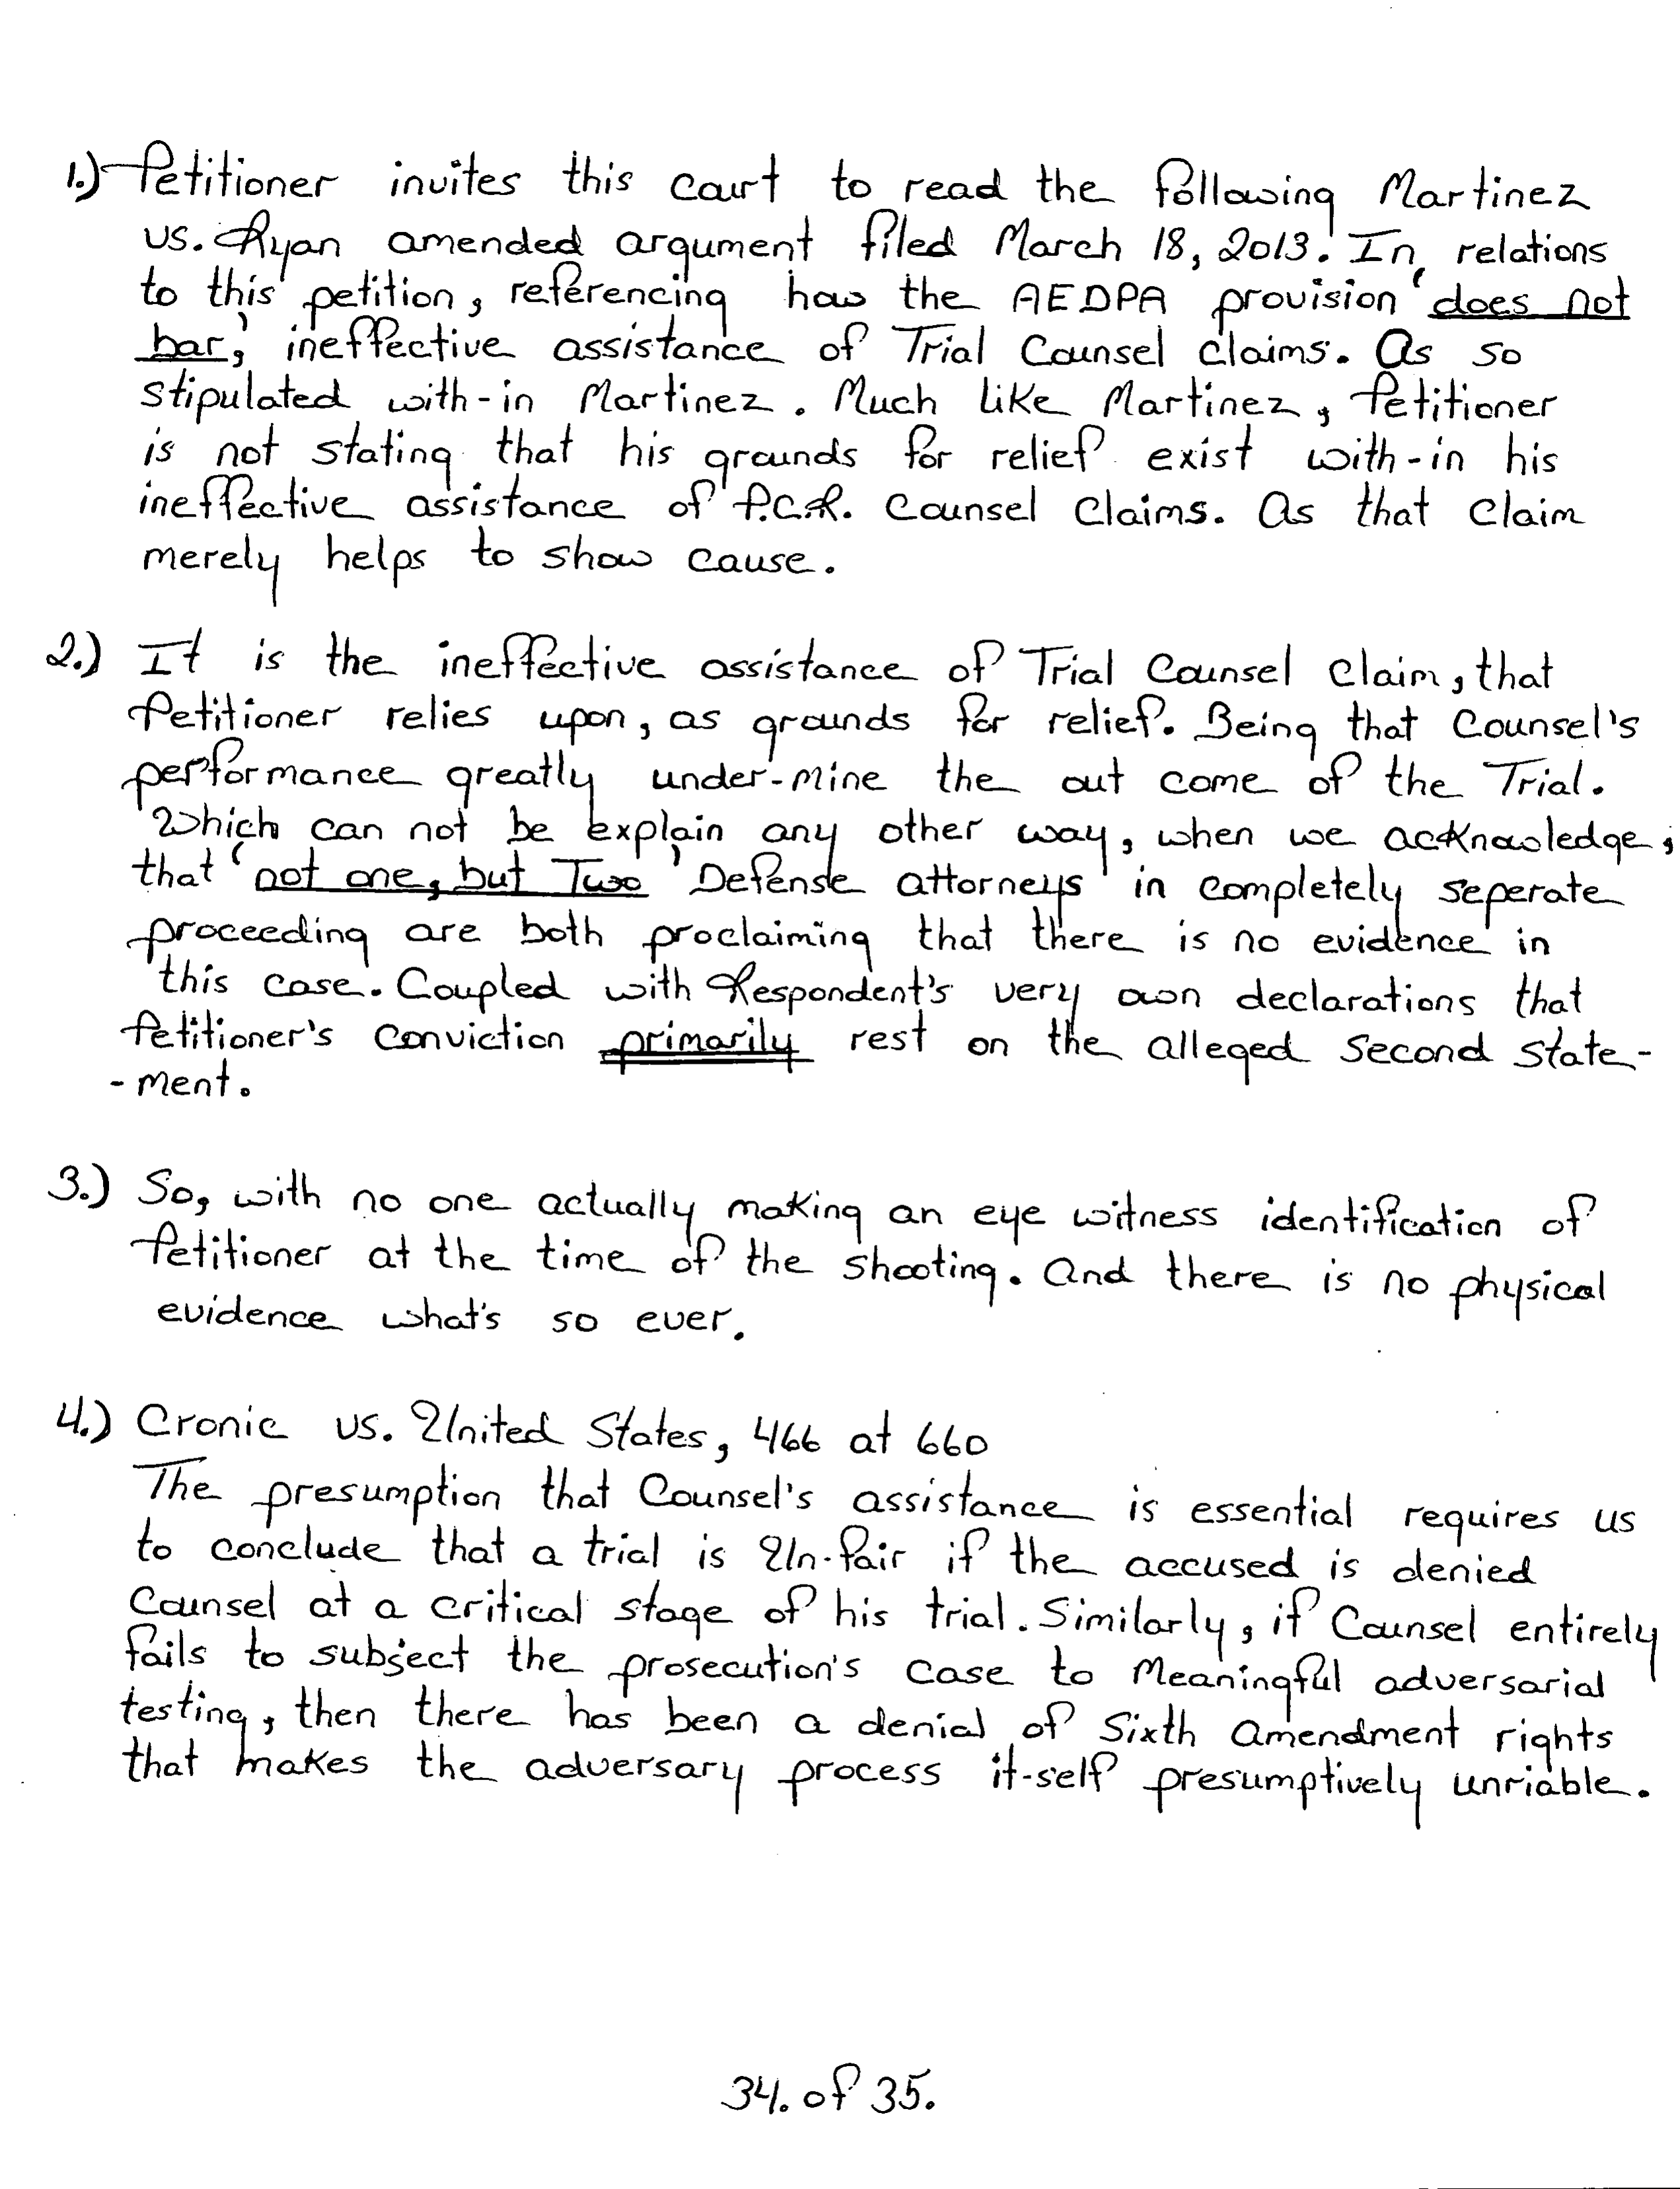 1.) Petitioner invites this court to read the following Martinez
vs. Ryan amended argument filed March 18, 2013. In relations
to this petition, referencing how the AEDPA provision 'does not
bar,' ineffective assistance of Trial Counsel Claims. As so
stipulated with-in Martinez. Much like Martinez, Petitioner
is not stating that his grounds for relief exist with-in his
ineffective assistance of P.C.R. Counsel Claims. As that Claim
merely helps to show cause.
2.) It is the ineffective assistance of Trial Counsel Claim, that
Petitioner relies upon, as grounds for relief. Being that Counsel's
performance greatly under-mine the out come of the Trial.
Which can not be explain any other way, when we acknowledge,
that 'not one, but Two' Defense attorneys in completely seperate
proceeding are both proclaiming that there is no evidence in
this case. Coupled with Respondent's very own declarations that
Petitioner's Conviction primarily rest on the alleged second state-
-ment.
3.) So, with no one actually making an eye witness identification of
Petitioner at the time of the shooting. And there is no physical
evidence what's so ever.
4.) Cronic vs. United States, 466 at 660
The presumption that Counsel's assistance is essential requires us
to conclude that a trial is Un-fair if the accused is denied
Counsel at a critical stage of his trial. Similarly, if Counsel entirely
fails to subject the prosecution's case to Meaningful adversarial
testing, then there has been a denial of Sixth Amendment rights
that makes the adversary process it-self presumptively unriable.
34. of 35.